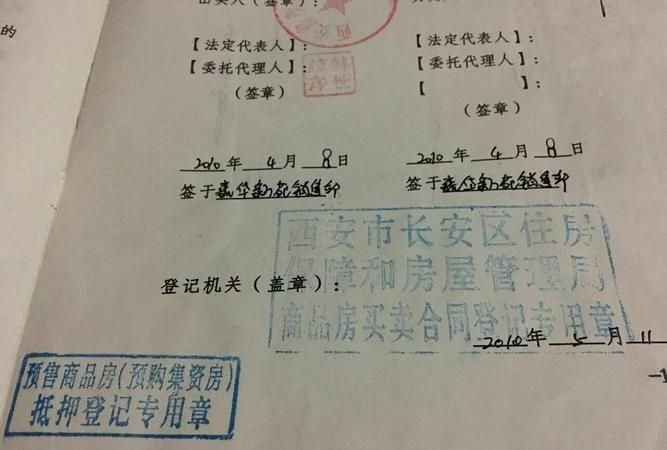 的
出卖人（签章）：
【法定代表人】：
【法定代表人】：
【委托代理人】：
【委托代理人】：
（签章）
【 】：
（签章）
2010年 4 月 8 日
2010年 4 月 8 日
签于嘉华新苑销售部
签于嘉华新苑销售部
西安市长安区住房
保障和房屋管理局
登记机关（盖章）：
商品房买卖合同登记专用章
2010年 5 月 11
预售商品房（预购集资房）
抵押登记专用章